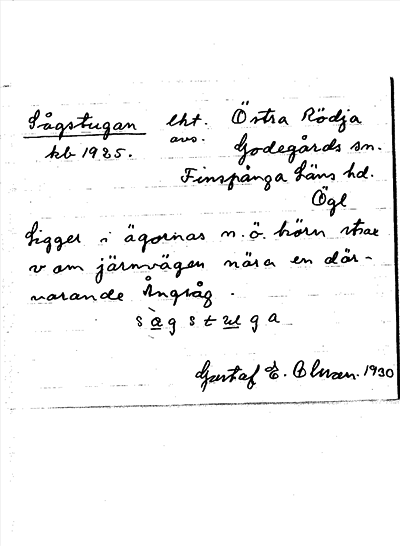 Sågstugan lht. Östra Rödja
kb 1925. avs. Godegårds sn.
Finspånga Läns hd.
Ögl
Ligger i ägornas n.ö. hörn strax
v om järnvägen nära en där-
varande Ångsåg.
sàgstuga
Gustaf E. Olsson. 1930